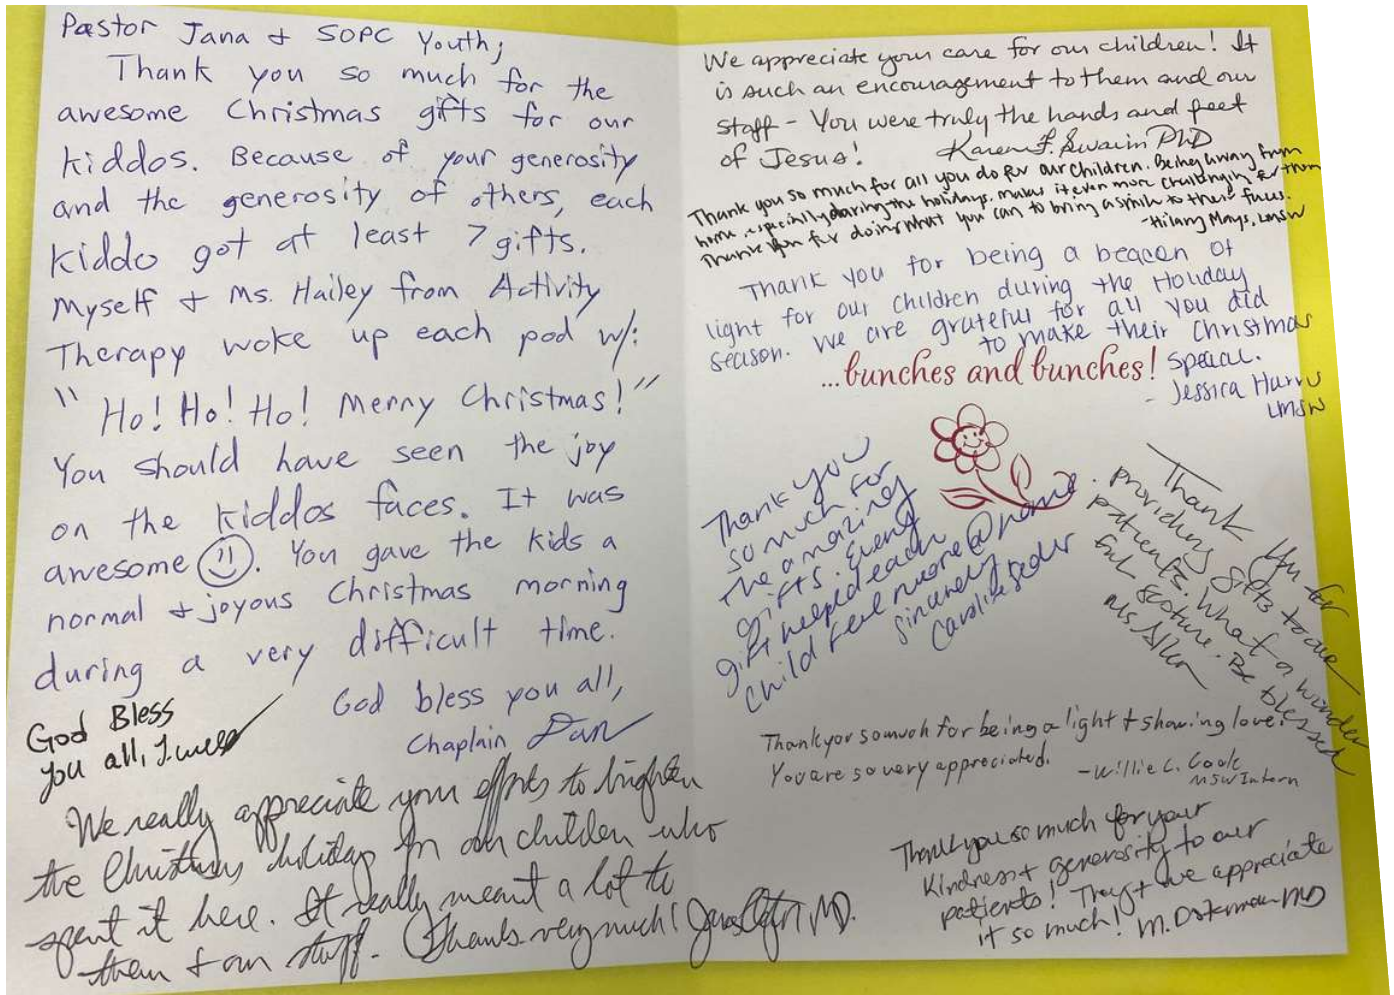 Pastor Jana & SOPC Youth;
Thank you so much for the
awesome Christmas gifts for our
kiddos. Because of your generosity
and the generosity of others, each
kiddo got at least 7 gifts.
Myself & Ms. Hailey from Activity
Therapy woke up each pod w/:
"Ho! Ho! Ho! Merry Christmas!"
You should have seen the joy
on the kiddos faces. It was
awesome. You gave the kids a
normal & joyous Christmas morning
during a very difficult time.
God bless you all,
Chaplain Dan
God Bless
you all,
We really appreciate your efforts to brighten
the Christmas holiday for our children who
spent it here. It really meant a lot to
them & our staff. Thanks very much! MD.
We appreciate your care for our children! It
is such an encouragement to them and our
staff - You were truly the hands and feet
of Jesus! Karen F. Swaim PhD
Thank you so much for all you do for our children. Being away from
home, especially during the holidays, makes it even more challenging for them.
Thank you for doing what you can to bring a smile to their faces.
-Hilary Mays, LMSW
Thank you for being a beacon of
light for our children during the Holiday
season. We are grateful for all you did
to make their Christmas
special.
- Jessica Harris
LMSW
...bunches and bunches!
Thank you
so much for
the amazing
gifts. Every
gift helped each
child feel more @ home.
Sincerely
Caroline
Thank you for
providing gifts to our
patients. What a wonder
ful gesture. Be blessed
Ms. Allen
Thank you so much for being a light & showing love!
You are so very appreciated.
-Willie C. Cook
MSW Intern
Thank you so much for your
kindness & generosity to our
patients! They & we appreciate
it so much! M. MD